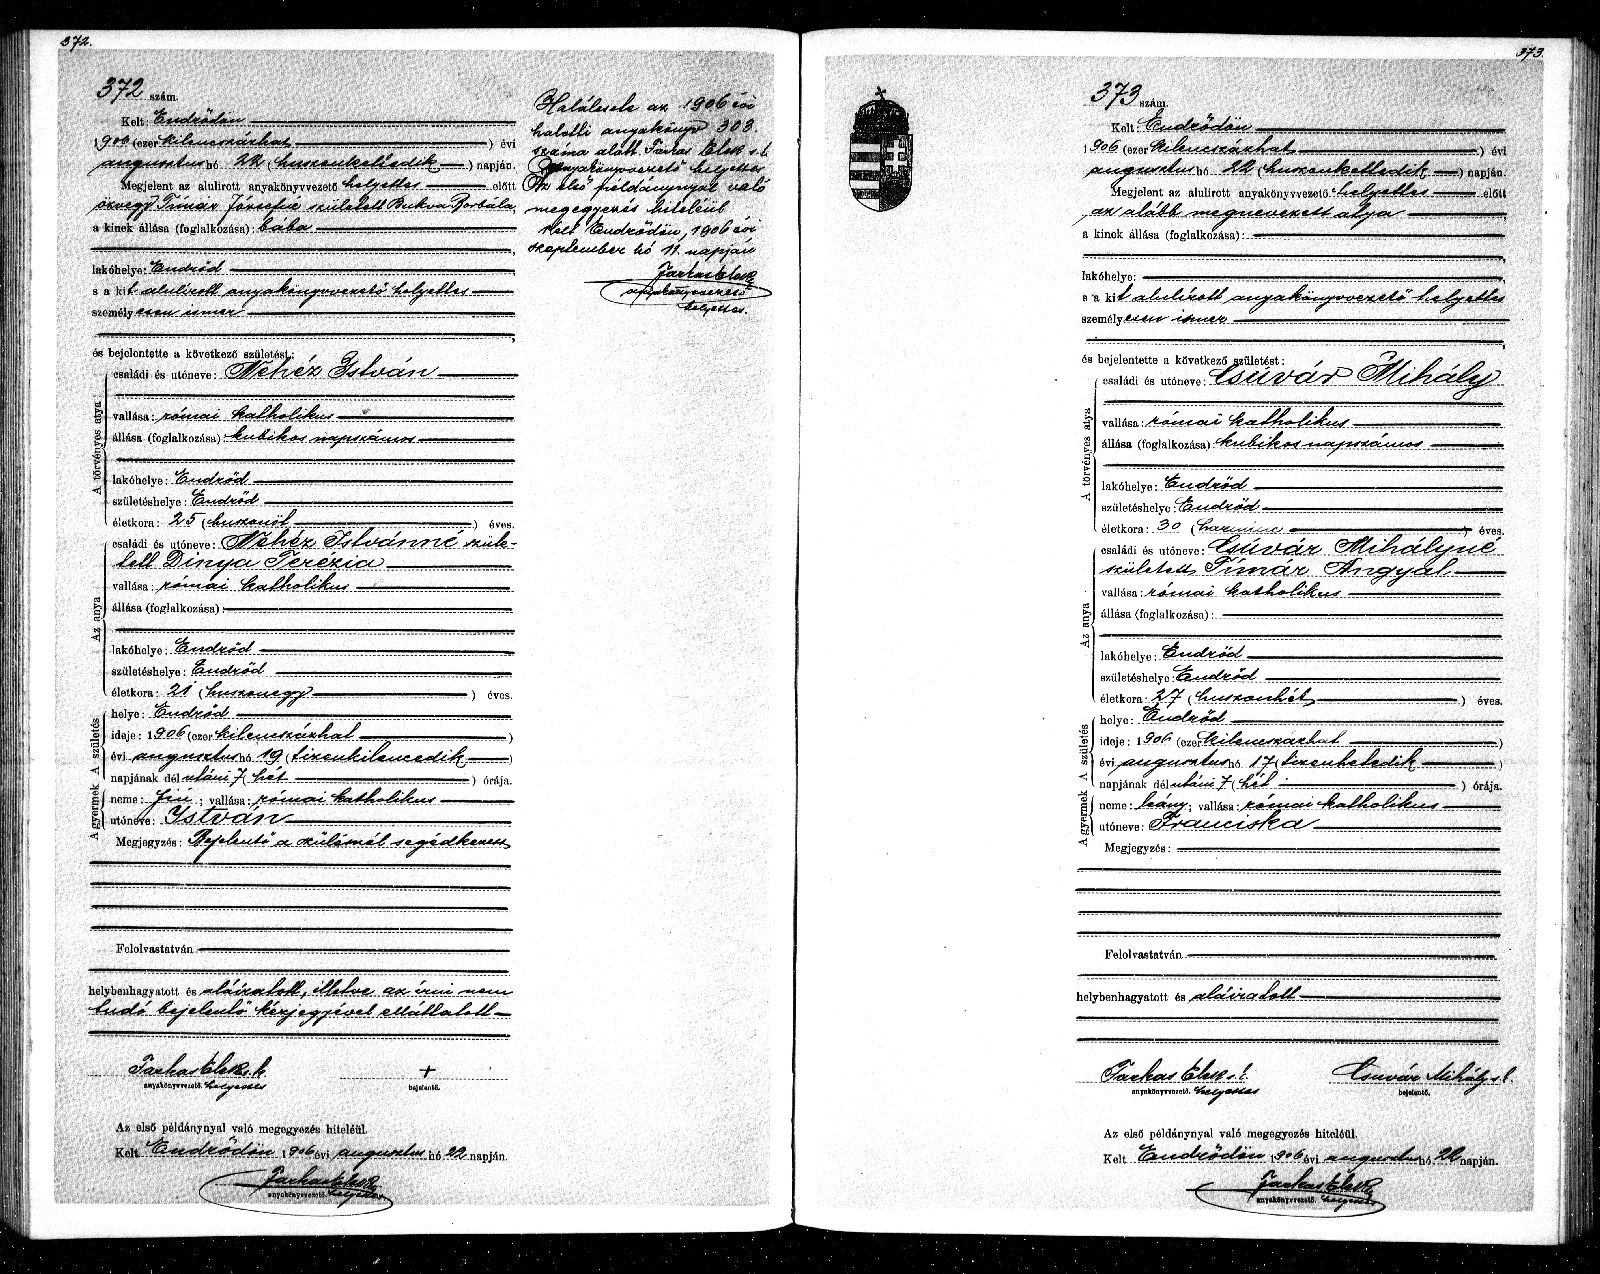 372.
372 szám.
Kelt: Endrődön
1906 (ezer kilencszázhat ) évi
augusztus hó 22 (huszonkettedik ) napján.
Megjelent az alulirott anyakönyvvezető helyettes előtt
özvegy Tímár Józsefné született Bukva Borbála,
a kinek állása (foglalkozása): bába
lakóhelye: Endrőd
s a kit alulírott anyakönyvvezető helyettes
személyesen ismer
és bejelentette a következő születést:
A törvényes atya
családi és utóneve: Nehéz István
vallása: római katholikus
állása (foglalkozása): kubikos napszámos
lakóhelye: Endrőd
születéshelye: Endrőd
életkora: 25 (huszonöt ) éves.
Az anya
családi és utóneve: Nehéz Istvánné szüle-
tett Dinya Terézia
vallása: római katholikus
állása (foglalkozása):
lakóhelye: Endrőd
születéshelye: Endrőd
életkora: 21 (huszonegy ) éves.
A gyermek A születés
helye: Endrőd
ideje: 1906 (ezer kilencszázhat )
évi augusztus hó 19 (tizenkilencedik )
napjának dél utáni 7 (hét ) órája.
neme: fiú; vallása: római katholikus
utóneve: István
Megjegyzés: Bejelentő a szülésnél segédkezett
Felolvastatván
helybenhagyatott és aláiratott, illetve az írni nem
tudó bejelentő kézjegyével elláttatott
Farkas Elek s. k. +
anyakönyvvezető. helyettes bejelentő.
Az első példánynyal való megegyezés hiteléül.
Kelt Endrődön 1906 évi augusztus hó 22 napján.
Farkas Elek
anyakönyvvezető. helyettes
Halálesete az 1906 évi
halotti anyakönyv 303.
száma alatt. Farkas Elek s. k.
anyakönyvvezető helyettes
Az első példánynyal való
megegyezés hiteléül
Kelt Endrődön, 1906 évi
szeptember hó 11. napján
Farkas Elek
anyakönyvvezető
helyettes.
373.
373 szám.
Kelt: Endrődön
1906 (ezer kilencszázhat ) évi
augusztus hó 22 (huszonkettedik ) napján.
Megjelent az alulirott anyakönyvvezető helyettes előtt
az alább megnevezett atya
a kinek állása (foglalkozása):
lakóhelye:
s a kit alulírott anyakönyvvezető helyettes
személyesen ismer
és bejelentette a következő születést:
A törvényes atya
családi és utóneve: Csúvár Mihály
vallása: római katholikus
állása (foglalkozása): kubikos napszámos
lakóhelye: Endrőd
születéshelye: Endrőd
életkora: 30 (harminc ) éves.
Az anya
családi és utóneve: Csúvár Mihályné
született Tímár Angyal
vallása: római katholikus
állása (foglalkozása):
lakóhelye: Endrőd
születéshelye: Endrőd
életkora: 27 (huszonhét ) éves.
A gyermek A születés
helye: Endrőd
ideje: 1906 (ezer kilencszázhat )
évi augusztus hó 17 (tizenhetedik )
napjának dél utáni 7 (hét ) órája.
neme: leány; vallása: római katholikus
utóneve: Franciska
Megjegyzés:
Felolvastatván
helybenhagyatott és aláiratott
Farkas Elek s. k. Csuvár Mihály s. k.
anyakönyvvezető. helyettes bejelentő.
Az első példánynyal való megegyezés hiteléül.
Kelt Endrődön 1906 évi augusztus hó 22 napján.
Farkas Elek
anyakönyvvezető. helyettes